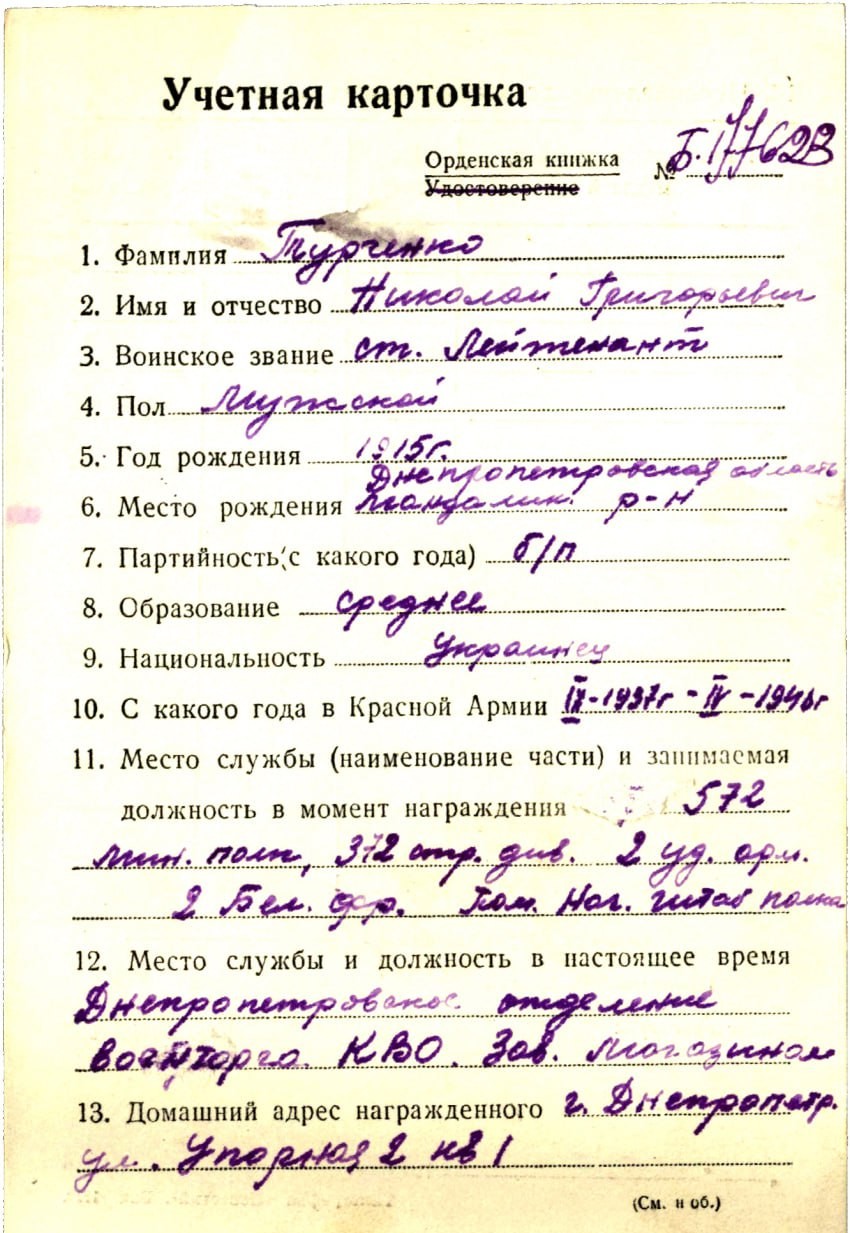 Учетная карточка
Орденская книжка № Б.177623
Удостоверение
1. Фамилия Турченко
2. Имя и отчество Николай Григорьевич
3. Воинское звание ст. Лейтенант
4. Пол Мужской
5. Год рождения 1915г.
Днепропетровская область
6. Место рождения р-н
7. Партийность (с какого года) б/п
8. Образование среднее
9. Национальность Украинец
10. С какого года в Красной Армии IX-1937г - IV -1946г
11. Место службы (наименование части) и занимаемая
должность в момент награждения 572
мин. полк, 372 стр. див. 2 уд. арм.
2 Бел. фр. Пом. Нач. штаб полка
12. Место службы и должность в настоящее время
Днепропетровское отделение
Военторга КВО. Зав. Магазином
13. Домашний адрес награжденного г. Днепропетр.
ул. Упорная 2 кв 1
(См. н об.)